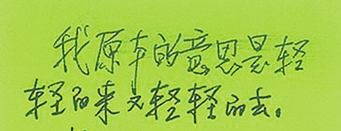 我原本的意思是轻
轻的来又轻轻的去。